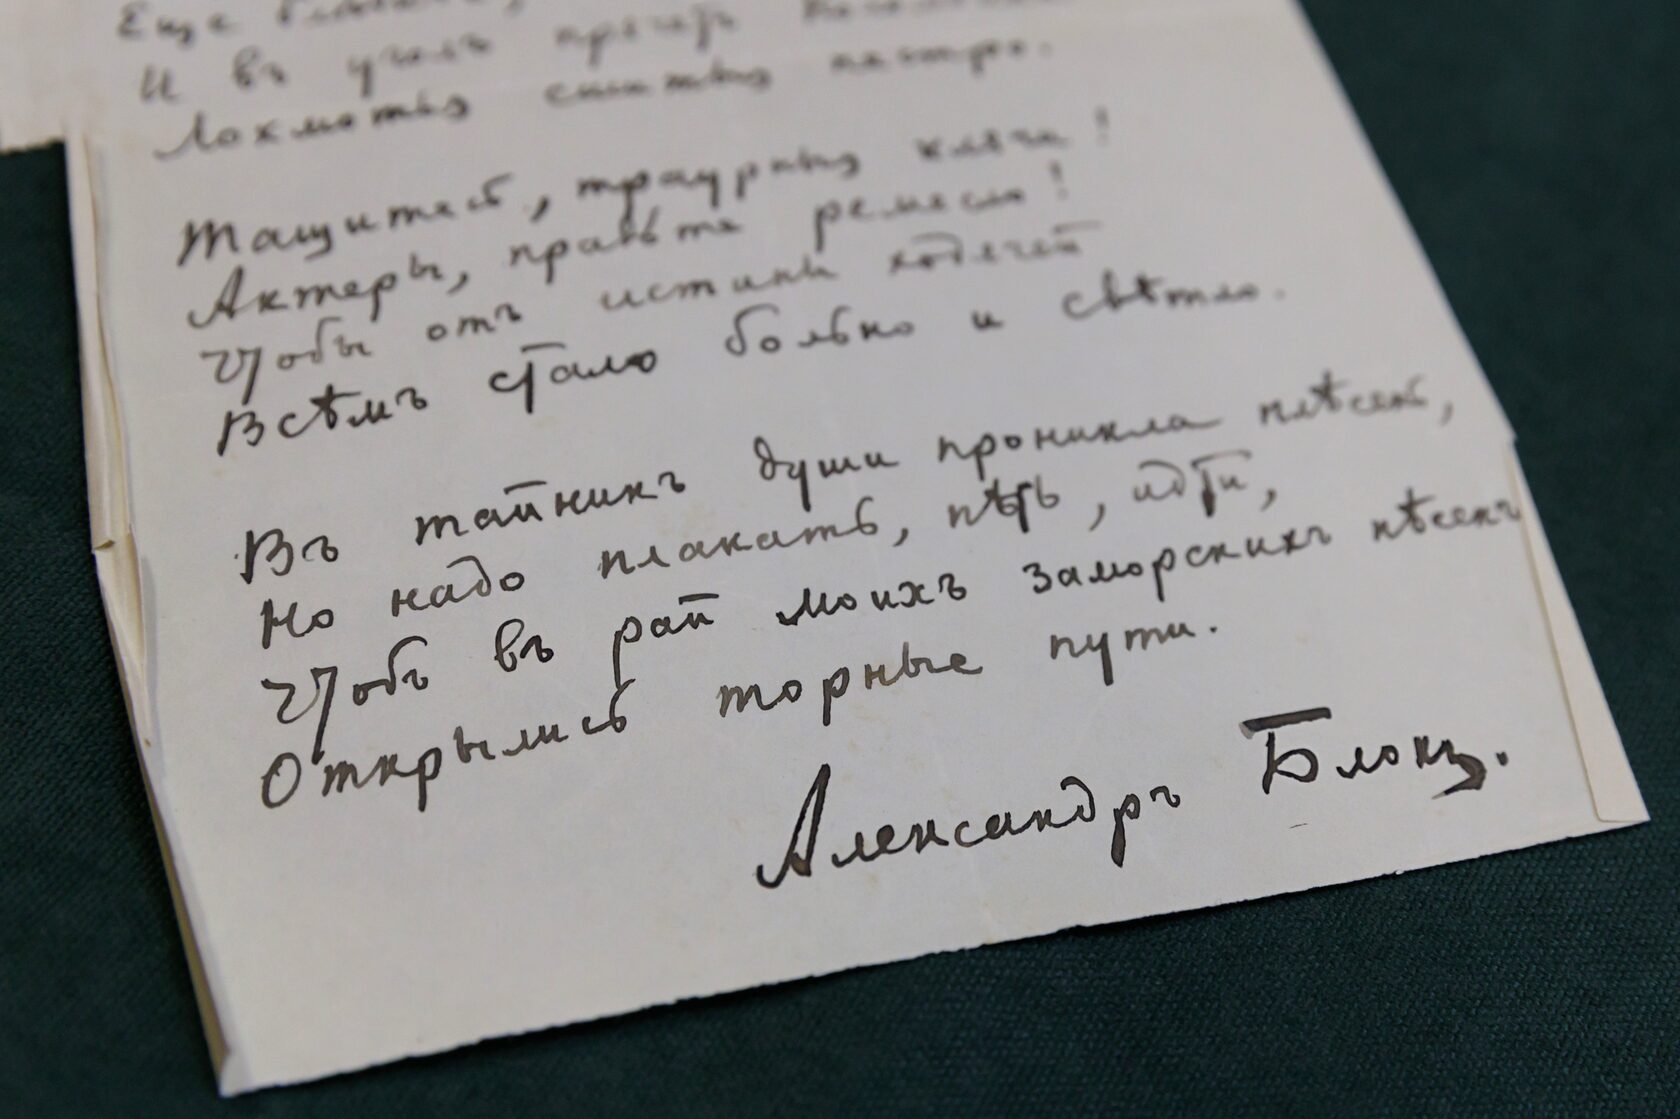 Еще
И въ уголъ прячетъ
Лохмотья сшитыя пестро.
Тащитесь, траурныя клячи!
Актеры, правьте ремесло!
Чтобы отъ истины ходячей
Всѣмъ стало больно и свѣтло.
Въ тайникъ души проникла плѣсень,
Но надо плакать, пѣть, идти,
Чтобъ въ рай моихъ заморскихъ пѣсенъ
Открылись торные пути.
Александръ Блокъ.